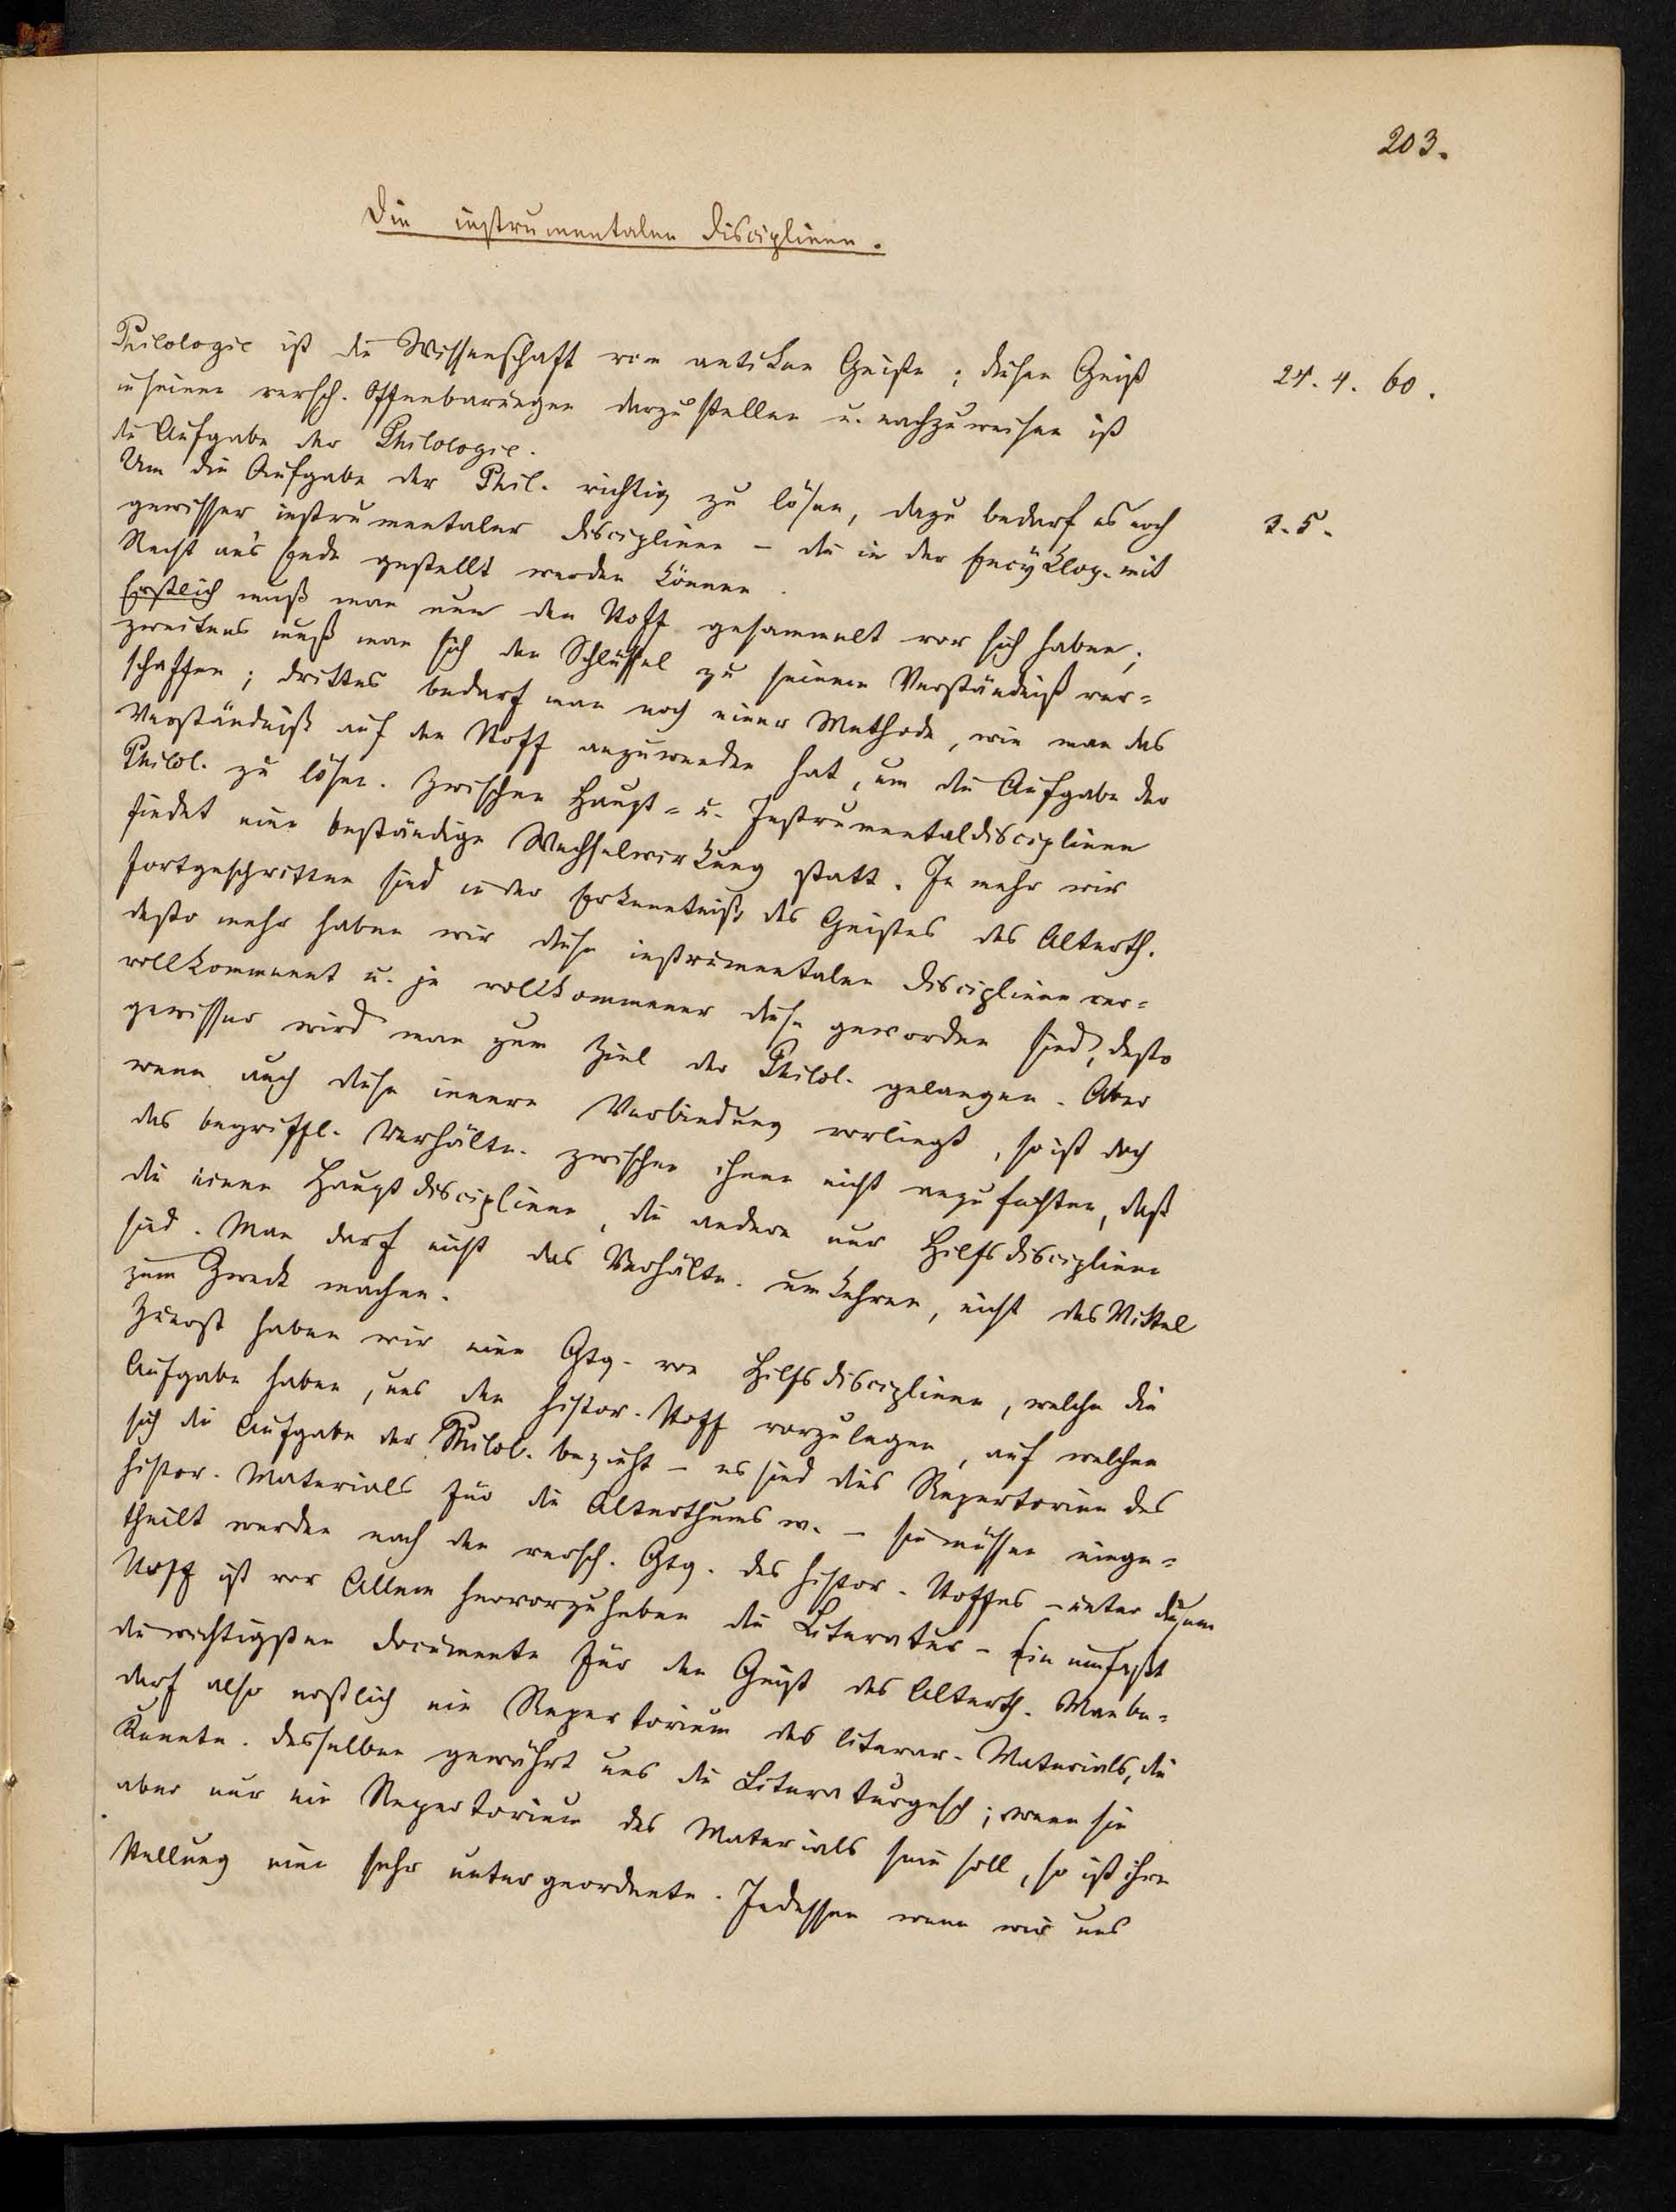 203.
Die instrumentalen Disciplinen.
Philologie ist die Wissenschaft vom antiken Geiste; diesen Geist
24. 4. 60.
in seinen versch. Offenbarungen darzustellen u. nachzuweisen ist
die Aufgabe der Philologie.
Um die Aufgabe der Phil. richtig zu lösen, dazu bedarf es noch
3. 5.
gewisser instrumentaler Disciplinen – die in der Encyklop. mit
Recht an's Ende gestellt werden können.
Erstlich muß man nun den Stoff gesammelt vor sich haben;
zweitens muß man sich den Schlüssel zu seinem Verständniß ver=
schaffen; drittes bedarf man noch einer Methode, wie man das
Verständniß auf den Stoff anzuwenden hat, um die Aufgabe der
Philol. zu lösen. Zwischen Haupt= u. Instrumentaldisciplinen
findet eine beständige Wechselwirkung statt. Je mehr wir
fortgeschritten sind in der Erkenntniß des Geistes des Alterth.
desto mehr haben wir diese instrumentalen Disciplinen ver=
vollkommnet u. je vollkommener diese geworden sind, desto
gewisser wird man zum Ziel der Philol. gelangen. Aber
wenn auch diese innere Verbindung vorliegt, so ist doch
das begriffl. Verhältn. zwischen ihnen nicht anzufechten, daß
die einen Hauptdisciplinen, die andern nur Hilfsdisciplinen
sind. Man darf nicht das Verhältn. umkehren, nicht das Mittel
zum Zweck machen.
Zuerst haben wir eine Gtg. von Hilfsdisciplinen, welche die
Aufgabe haben, uns den histor. Stoff vorzulegen, auf welchen
sich die Aufgabe der Philol. bezieht – es sind dies Repertorien des
histor. Materials für die Alterthumsw. – sie müssen einge=
theilt werden nach den versch. Gtg. des histor. Stoffes – unter diesem
Stoff ist vor Allem hervorzuheben die Literatur – sie umfaßt
die wichtigsten Documente für den Geist des Alterth. Man be=
darf also erstlich ein Repertorium des literar. Materials, die
Kenntn. desselben gewährt uns die Literaturgesch; wenn sie
aber nur ein Repertorium des Materials sein soll, so ist ihre
Stellung eine sehr untergeordnete. Indessen wenn wir uns